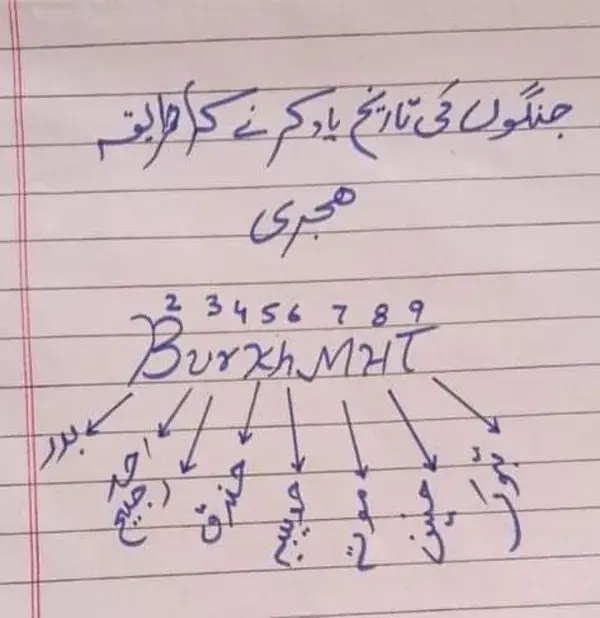 جنگوں کی تاریخ یاد کرنے کا طریقہ
ھجری
2 3 4 5 6 7 8 9
BurKhMHT
بدر احد رجیع خندق موتہ حنین تبوک